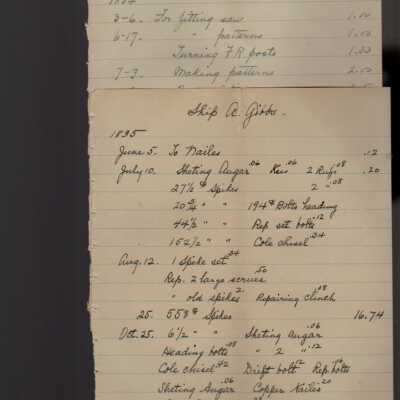 3-6. For fitting saw 1.00
6-17. " patterns 1.50
Turning F.R posts
7-3. Making patterns 2.50
Ship A. Gibbs.
1835
June 5. To Nailes .12
July 10. Sheting Augar .06 2 .08 .20
27½ # Spikes 2 " .08
20¾ " " 194# Botts heading
44½ " " Rep set botts .12
152½ " " Cole chisel .24
Aug. 12. 1 Spike set .24
Rep. 2 large scrues .50
" old spikes .2 Repairing clinch .08
25. 558# Spikes 16.74
Oct. 25. 6½ " " Sheting augar .06
Heading botts .08 " 2 " .12
Cole chisel .42 Drift bolt .2 Rep. botts
Sheting Augar .06 Copper Nailes .20